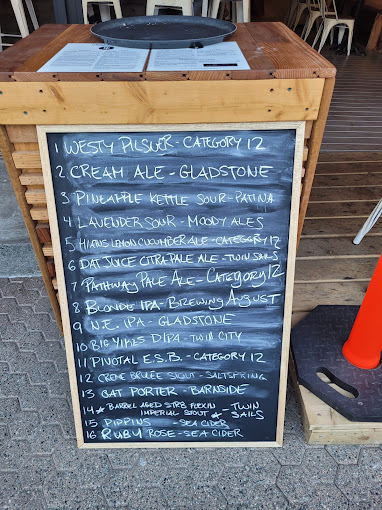 1 WESTY PILSNER - CATEGORY 12
2 CREAM ALE - GLADSTONE
3 PINEAPPLE KETTLE SOUR - PATINA
4 LAVENDER SOUR - MOODY ALES
5 HIATUS LEMON CUCUMBER ALE - CATEGORY 12
6 DAT JUICE CITRA PALE ALE - TWIN SAILS
7 PATHWAY PALE ALE - CATEGORY 12
8 BLONDE IPA - BREWING AUGUST
9 N.E. IPA - GLADSTONE
10 BIG YIKES DIPA - TWIN CITY
11 PIVOTAL E.S.B. - CATEGORY 12
12 CREME BRULEE STOUT - SALTSPRING
13 OAT PORTER - BARNSIDE
14 * BARREL AGED STR8 FLEXIN - TWIN
IMPERIAL STOUT * SAILS
15 PIPPINS - SEA CIDER
16 RUBY ROSE - SEA CIDER